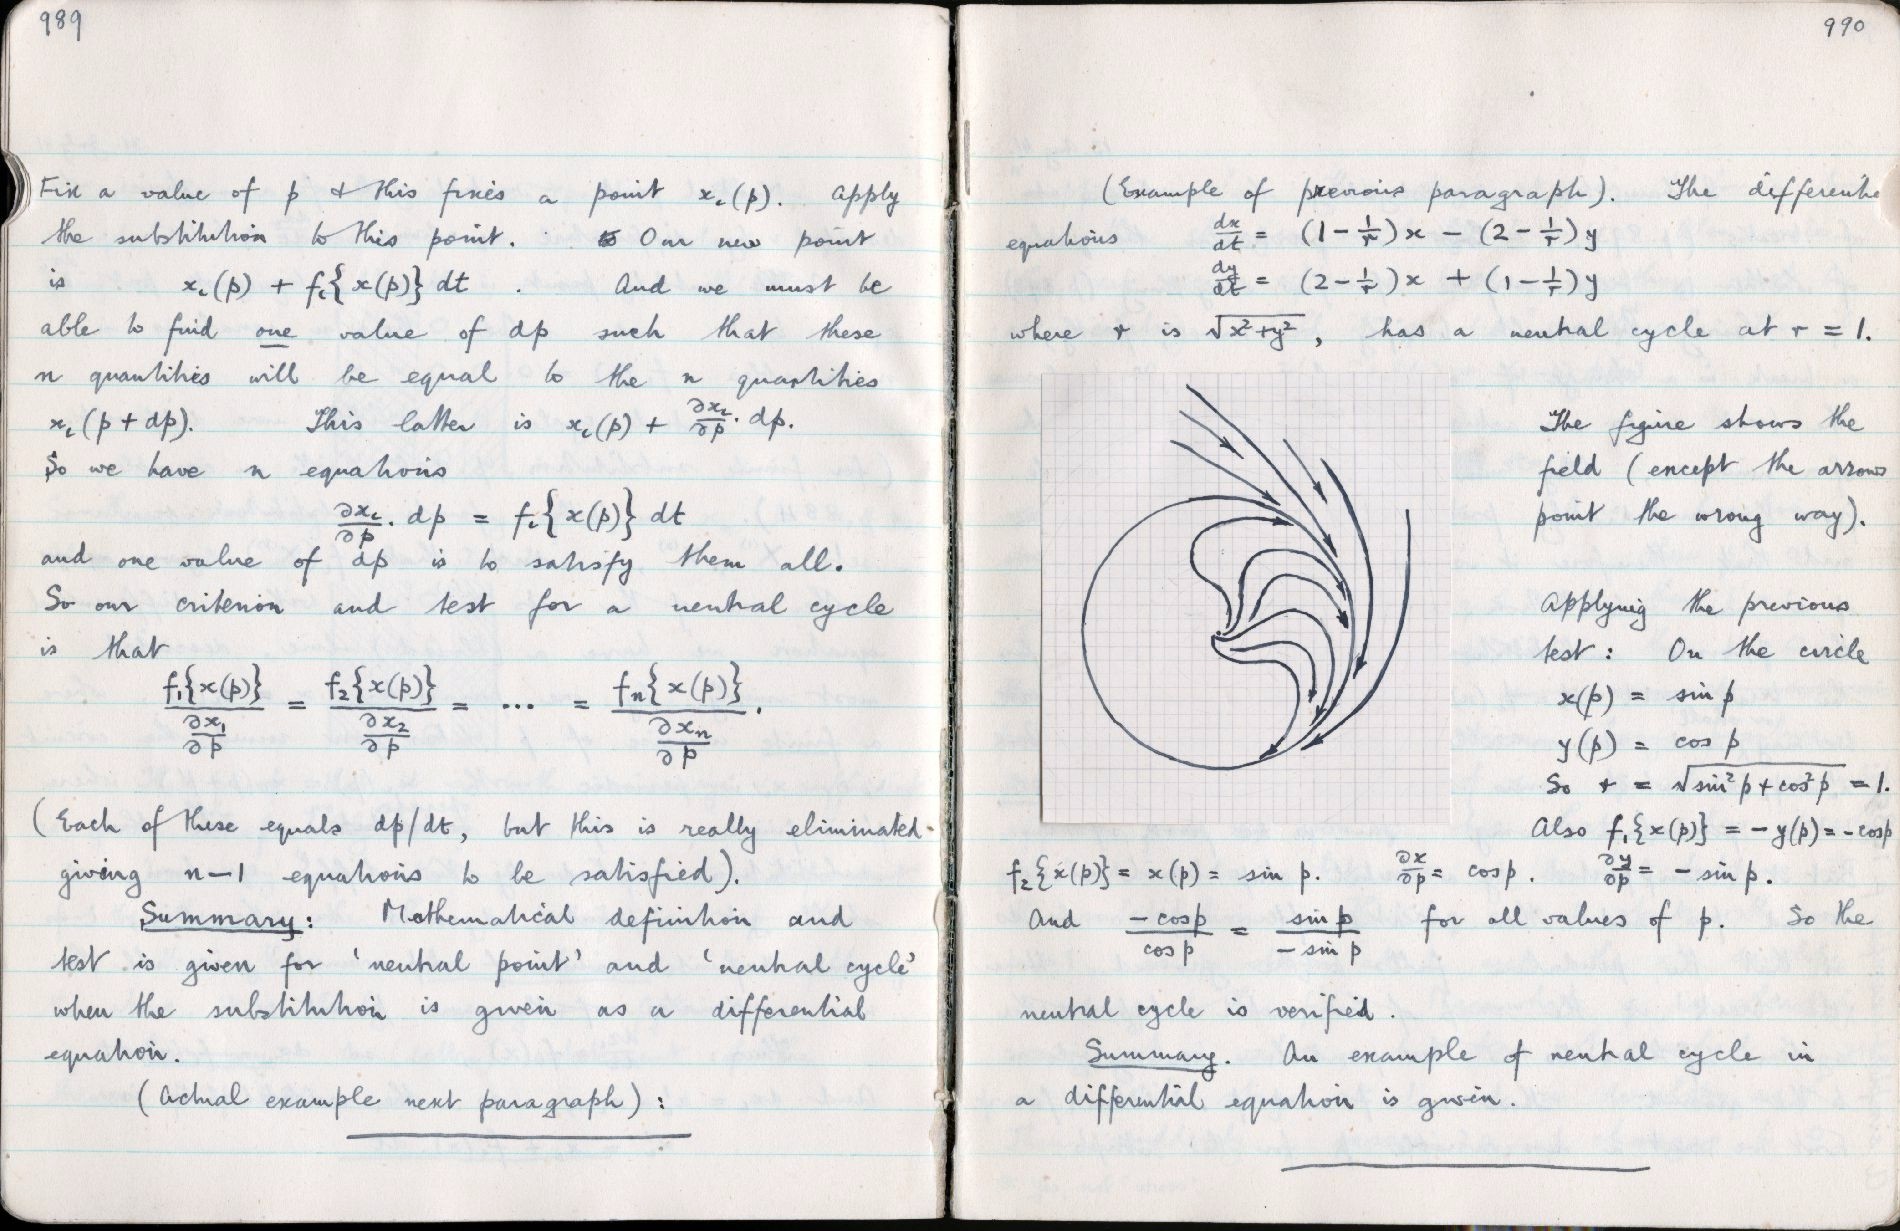 989
Fix a value of p & this fixes a point xᵢ(p). Apply
the substitution to this point. Our new point
is xᵢ(p) + fᵢ{x(p)} dt . And we must be
able to find one value of dp such that these
n quantities will be equal to the n quantities
xᵢ(p + dp). This latter is xᵢ(p) + ∂xᵢ/∂p · dp.
So we have n equations
∂xᵢ/∂p · dp = fᵢ{x(p)} dt
and one value of dp is to satisfy them all.
So our criterion and test for a neutral cycle
is that
f₁{x(p)} / (∂x₁/∂p) = f₂{x(p)} / (∂x₂/∂p) = ... = fₙ{x(p)} / (∂xₙ/∂p).
(Each of these equals dp/dt, but this is really eliminated
giving n-1 equations to be satisfied).
Summary: Mathematical definition and
test is given for 'neutral point' and 'neutral cycle'
when the substitution is given as a differential
equation.
(Actual example next paragraph):
990
(Example of previous paragraph). The differentia
equations dx/dt = (1 - 1/r)x - (2 - 1/r)y
dy/dt = (2 - 1/r)x + (1 - 1/r)y
where r is √x²+y², has a neutral cycle at r = 1.
The figure shows the
field (except the arrows
point the wrong way).
Applying the previous
test: On the circle
x(p) = sin p
y(p) = cos p
So r = √sin²p + cos²p = 1.
Also f₁{x(p)} = -y(p) = -cos p
f₂{x(p)} = x(p) = sin p. ∂x/∂p = cos p. ∂y/∂p = - sin p.
And -cos p / cos p = sin p / -sin p for all values of p. So the
neutral cycle is verified.
Summary. An example of neutral cycle in
a differential equation is given.